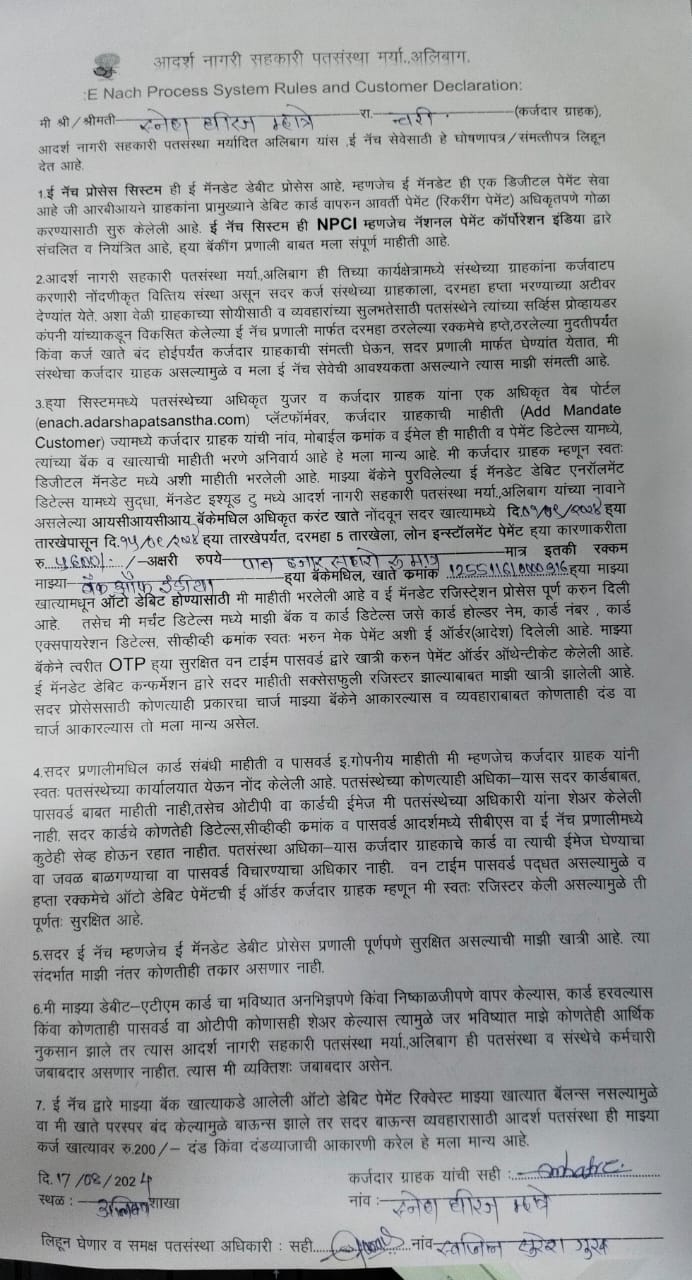 आदर्श नागरी सहकारी पतसंस्था मर्या.,अलिबाग.
:E Nach Process System Rules and Customer Declaration:
मी श्री/श्रीमती स्नेहा धीरज म्हात्रे रा. (कर्जदार ग्राहक),
आदर्श नागरी सहकारी पतसंस्था मर्यादित अलिबाग यांस ,ई नॅच सेवेसाठी हे घोषणापत्र/संमत्तीपत्र लिहून
देत आहे.
1.ई नॅच प्रोसेस सिस्टम ही ई मॅनडेट डेबीट प्रोसेस आहे. म्हणजेच ई मॅनडेट ही एक डिजीटल पेमेंट सेवा
आहे जी आरबीआयने ग्राहकांना प्रामुख्याने डेबिट कार्ड वापरुन आवर्ती पेमेंट (रिकरींग पेमेंट) अधिकृतपणे गोळा
करण्यासाठी सुरु केलेली आहे. ई नॅच सिस्टम ही NPCI म्हणजेच नॅशनल पेमेंट कॉर्पोरेशन इंडिया द्वारे
संचलित व नियंत्रित आहे, ह्या बॅकींग प्रणाली बाबत मला संपूर्ण माहीती आहे.
2.आदर्श नागरी सहकारी पतसंस्था मर्या.,अलिबाग ही तिच्या कार्यक्षेत्रामध्ये संस्थेच्या ग्राहकांना कर्जवाटप
करणारी नोंदणीकृत वित्तिय संस्था असून सदर कर्ज संस्थेच्या ग्राहकाला, दरमहा हप्ता भरण्याच्या अटीवर
देण्यांत येते. अशा वेळी ग्राहकाच्या सोयीसाठी व व्यवहारांच्या सुलभतेसाठी पतसंस्थेने त्यांच्या सर्व्हिस प्रोव्हायडर
कंपनी यांच्याकडून विकसित केलेल्या ई नॅच प्रणाली मार्फत दरमहा ठरलेल्या रक्कमेचे हप्ते,ठरलेल्या मुदतीपर्यंत
किंवा कर्ज खाते बंद होईपर्यंत कर्जदार ग्राहकाची संमत्ती घेऊन, सदर प्रणाली मार्फत घेण्यांत येतात, मी
संस्थेचा कर्जदार ग्राहक असल्यामुळे व मला ई नॅच सेवेची आवश्यकता असल्याने त्यास माझी संमत्ती आहे.
3.ह्या सिस्टममध्ये पतसंस्थेच्या अधिकृत युजर व कर्जदार ग्राहक यांना एक अधिकृत वेब पोर्टल
(enach.adarshapatsanstha.com) प्लॅटफॉर्मवर, कर्जदार ग्राहकाची माहीती (Add Mandate
Customer) ज्यामध्ये कर्जदार ग्राहक यांची नांव, मोबाईल क्रमांक व ईमेल ही माहीती व पेमेंट डिटेल्स यामध्ये,
त्यांच्या बँक व खात्याची माहीती भरणे अनिवार्य आहे हे मला मान्य आहे. मी कर्जदार ग्राहक म्हणून स्वतः
डिजीटल मॅनडेट मध्ये अशी माहीती भरलेली आहे. माझ्या बॅकेने पुरविलेल्या ई मॅनडेट डेबिट एनरॉलमेंट
डिटेल्स यामध्ये सुद्धा, मॅनडेट इश्यूड टु मध्ये आदर्श नागरी सहकारी पतसंस्था मर्या.,अलिबाग यांच्या नावाने
असलेल्या आयसीआयसीआय बॅकेमधिल अधिकृत करंट खाते नोंदवून सदर खात्यामध्ये दि. ह्या
तारखेपासून दि. ह्या तारखेपर्यंत, दरमहा 5 तारखेला, लोन इन्स्टॉलमेंट पेमेंट ह्या कारणाकरीता
रु. ५६00/- /-अक्षरी रुपये पाच हजार सहाशे रु मात्र मात्र इतकी रक्कम
माझ्या बँक ऑफ इंडीया ह्या बॅकेमधिल, खाते क्रमांक ह्या माझ्या
खात्यामधून ऑटो डेबिट होण्यासाठी मी माहीती भरलेली आहे व ई मॅनडेट रजिस्ट्रेशन प्रोसेस पूर्ण करुन दिली
आहे. तसेच मी मर्चंट डिटेल्स मध्ये माझी बँक व कार्ड डिटेल्स जसे कार्ड होल्डर नेम, कार्ड नंबर , कार्ड
एक्सपायरेशन डिटेल्स, सीव्हीव्ही क्रमांक स्वतः भरुन मेक पेमेंट अशी ई ऑर्डर(आदेश) दिलेली आहे. माझ्या
बॅकेने त्वरीत OTP ह्या सुरक्षित वन टाईम पासवर्ड द्वारे खात्री करुन पेमेंट ऑर्डर ऑथेन्टीकेट केलेली आहे.
ई मॅनडेट डेबिट कन्फर्मेशन द्वारे सदर माहीती सक्सेसफुली रजिस्टर झाल्याबाबत माझी खात्री झालेली आहे.
सदर प्रोसेससाठी कोणत्याही प्रकारचा चार्ज माझ्या बॅकेने आकारल्यास व व्यवहाराबाबत कोणताही दंड वा
चार्ज आकारल्यास तो मला मान्य असेल.
4.सदर प्रणालीमधिल कार्ड संबंधी माहीती व पासवर्ड इ.गोपनीय माहीती मी म्हणजेच कर्जदार ग्राहक यांनी
स्वतः पतसंस्थेच्या कार्यालयात येऊन नोंद केलेली आहे. पतसंस्थेच्या कोणत्याही अधिका-यास सदर कार्डबाबत,
पासवर्ड बाबत माहीती नाही,तसेच ओटीपी वा कार्डची ईमेज मी पतसंस्थेच्या अधिकारी यांना शेअर केलेली
नाही. सदर कार्डचे कोणतेही डिटेल्स,सीव्हीव्ही क्रमांक व पासवर्ड आदर्शमध्ये सीबीएस वा ई नॅच प्रणालीमध्ये
कुठेही सेव्ह होऊन रहात नाहीत. पतसंस्था अधिका-यास कर्जदार ग्राहकाचे कार्ड वा त्याची ईमेज घेण्याचा
वा जवळ बाळगण्याचा वा पासवर्ड विचारण्याचा अधिकार नाही. वन टाईम पासवर्ड पद्धत असल्यामुळे व
हप्ता रक्कमेचे ऑटो डेबिट पेमेंटची ई ऑर्डर कर्जदार ग्राहक म्हणून मी स्वतः रजिस्टर केली असल्यामुळे ती
पूर्णतः सुरक्षित आहे.
5.सदर ई नॅच म्हणजेच ई मॅनडेट डेबीट प्रोसेस प्रणाली पूर्णपणे सुरक्षित असल्याची माझी खात्री आहे. त्या
संदर्भात माझी नंतर कोणतीही तकार असणार नाही.
6.मी माझ्या डेबीट-एटीएम कार्ड चा भविष्यात अनभिज्ञपणे किंवा निष्काळजीपणे वापर केल्यास, कार्ड हरवल्यास
किंवा कोणताही पासवर्ड वा ओटीपी कोणासही शेअर केल्यास त्यामुळे जर भविष्यात माझे कोणतेही आर्थिक
नुकसान झाले तर त्यास आदर्श नागरी सहकारी पतसंस्था मर्या.,अलिबाग ही पतसंस्था व संस्थेचे कर्मचारी
जबाबदार असणार नाहीत. त्यास मी व्यक्तिशः जबाबदार असेन.
7. ई नॅच द्वारे माझ्या बँक खात्याकडे आलेली ऑटो डेबिट पेमेंट रिक्वेस्ट माझ्या खात्यात बॅलन्स नसल्यामुळे
वा मी खाते परस्पर बंद केल्यामुळे बाऊन्स झाले तर सदर बाऊन्स व्यवहारासाठी आदर्श पतसंस्था ही माझ्या
कर्ज खात्यावर रु.200/- दंड किंवा दंडव्याजाची आकारणी करेल हे मला मान्य आहे.
दि. 17/08/2024 कर्जदार ग्राहक यांची सही :
स्थळ : अलिबाग शाखा नांव: स्नेहा धीरज म्हात्रे
लिहून घेणार व समक्ष पतसंस्था अधिकारी : सही नांव